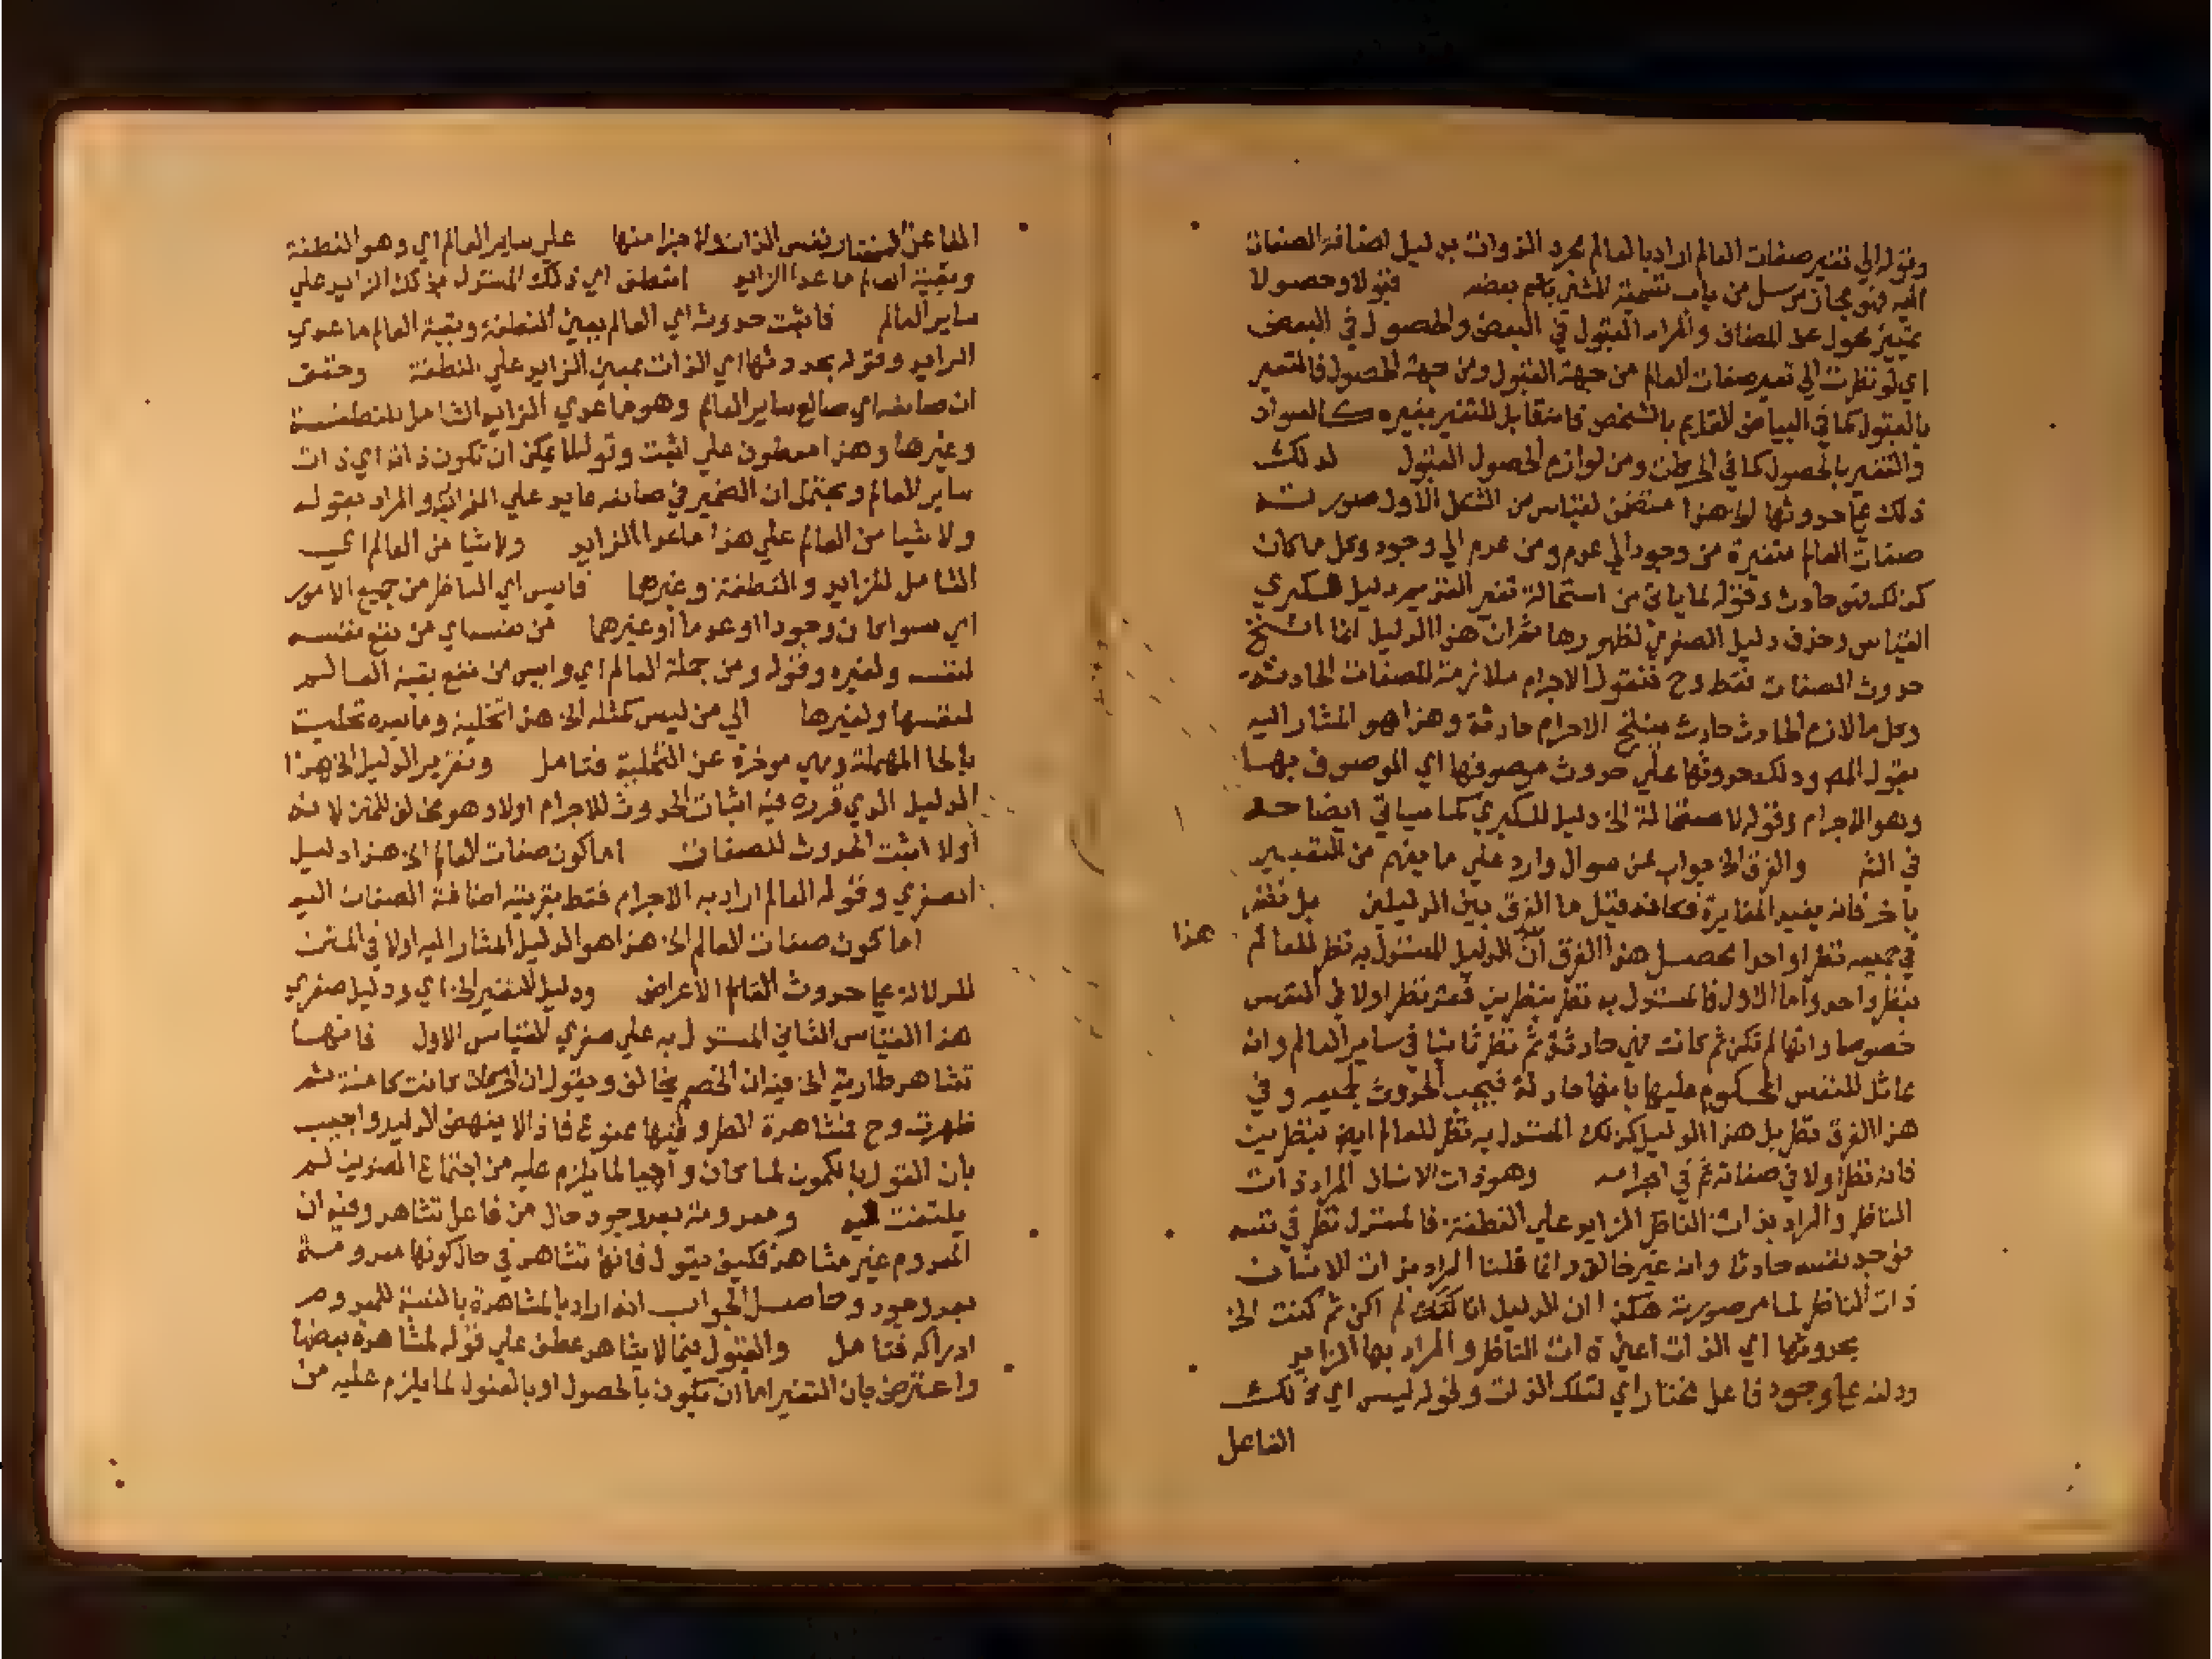 وقوله الي تغير صفات العالم اراد بالعالم مجرد الذوات بدليل اضافة الصفات
اليه فهو مجاز مرسل من باب تسمية الشي باسم بعضه قبولا وحصولا
تمييز محول عن المضاف والمراد القبول في البعض والحصول في البعض
اي لو نظرت الي تغير صفات العالم من جهة القبول ومن جهة الحصول فالتغير
بالقبول كما في البياض القايم بالشخص فانه قابل للتغير بغيره كالسواد
والتغير بالحصول كما في ومن لوازم الحصول القبول لدلك
ذلك علي حدوثها الخ هذا متضمن لقياس من الشكل الاول صورته
صفات العالم متغيرة من وجود الي عدم ومن عدم الي وجود وكل ما كان
كذلك فهو حادث وقوله لما ياتي من استحالة تغير القديم دليل لكبري
القياس وحذف دليل الصغري لظهورها ثم ان هذا الدليل انما انتج
حدوث الصفات فقط وح فنقول الاجرام ملازمة للصفات الحادثة
وكل ما لازم الحادث حادث ينتج الاجرام حادثة وهذا هو المشار اليه
بقول المص ودلك حدوثها علي حدوث موصوفها اي الموصوف بها
وهو الاجرام وقوله لاستحالة الخ دليل للكبري كما سياتي ايضاحه
في الش والفرق الخ جواب عن سوال وارد علي ما يفهم من التعبير
باخر فانه يفيد المغايرة فكانه قيل ما الفرق بين الدليلين بل نظر
في جميعه نظرا واحدا محصل هذا الفرق ان الدليل المستدل به نظر للعالم
هذا
بنظر واحد واما الاول فالمستدل به نظر بنظرين نظر اولا في النفس
خصوصا وانها لم تكن ثم كانت فهي حادثة ثم نظر ثانيا في ساير العالم وانه
مماثل للنفس المحكوم عليها بانها حادثة فيجب الحدوث لجميعه وفي
هذا الفرق نظر بل هذا الدليل كذلك المستدل به نظر للعالم ايض بنظرين
فانه نظر اولا في صفاته ثم في اجرامه وهو ذات الانسان المراد ذات
الناظر والمراد بذات الناظر الزايد علي النطفة فالمستدل نظر في نفسه
فوجد نفسه حادثا وانه غير خالق وانما قلنا المراد من ان الانسان
ذات الناظر لما مر صورية هكذا ان الدليل انا لم اكن ثم كنت الخ
بحدوثها اي الذات اعني ذات الناظر والمراد بها الزايد
ودلنه علي وجود فاعل مختار اي لتلك الذات وقوله ليس اي ذلك
الفاعل
الفاعل المختار نفس الذات ولا جزا منها علي ساير العالم اي وهو النطفة
وبقية العالم ما عدا الزايد انتطق اي ذلك المستدل من ذلك الزايد علي
ساير العالم فاثبت حدوثه اي العالم بمعني النطفة وبقية العالم ما عدي
الزايد وقوله بحدوثها اي الذات بمعني الزايد علي النطفة وحقق
ان صانعه اي صانع ساير العالم وهو ما عدي الزايد الشامل للنطفة
وغيرها وهذا معطوف علي اثبت وقوله لا يمكن ان تكون ذاته اي ذات
ساير العالم ويحتمل ان الضمير في صانعه عايد علي الزايد والمراد بقوله
ولا شيا من العالم علي هذا ما عدا الزايد ولا شيا من العالم اي
الشامل للزايد والنطفة وغيرها فايس اي الناظر من جميع الامور
اي سوا كان وجودا او عدما او غيرهما من نفسه اي من نفع نفسه
لنفسه ولغيره وقوله ومن جملة العالم اي وايس من نفع بقية العالم
لنفسها ولغيرها الي من ليس كمثله الخ هذا تخلية وما بعده تحلية
بالحا المهملة وهي موخرة عن التخلية فتامل وتقرير الدليل الخ هذا
الدليل الذي قرره فيه اثبات الحدوث للاجرام اولا وهو مخالف للمتن لانه
اولا اثبت الحدوث للصفات اما كون صفات العالم الخ هذا دليل
الصغري وقوله العالم اراد به الاجرام فقط بقرينة اضافة الصفات اليه
اما كون صفات العالم الخ هذا هو الدليل المشار اليه اولا في المتن
للدلالة علي حدوث العالم الاعراض ودليل التغير الخ اي ودليل صغري
هذا القياس الثاني المستدل به علي صغري القياس الاول فانها
تشاهد طارية الخ فيه ان الخصم يخالف ويقول ان الحركات كانت كامنة ثم
ظهرت وح فمشاهدة الطرو فيها ممنوع فاذا لا ينهض الدليل واجيب
بان القول بالكمون لما كان واهيا لما يلزم عليه من اجتماع الضدين لم
يلتفت اليه ومعدومة بعد وجود حال من فاعل تشاهد وفيه ان
المعدوم غير مشاهد فكيف يقول فانها تشاهد في حال كونها معدومة
بعد وجود وحاصل الجواب انه اراد بالمشاهدة بالنسبة للمعدوم
ادراكه فتامل والقبول فيما لا يشاهد عطف علي قوله لمشاهدة بعضها
واعترض بان التغير اما ان تكون بالحصول او بالقبول لما يلزم عليه من